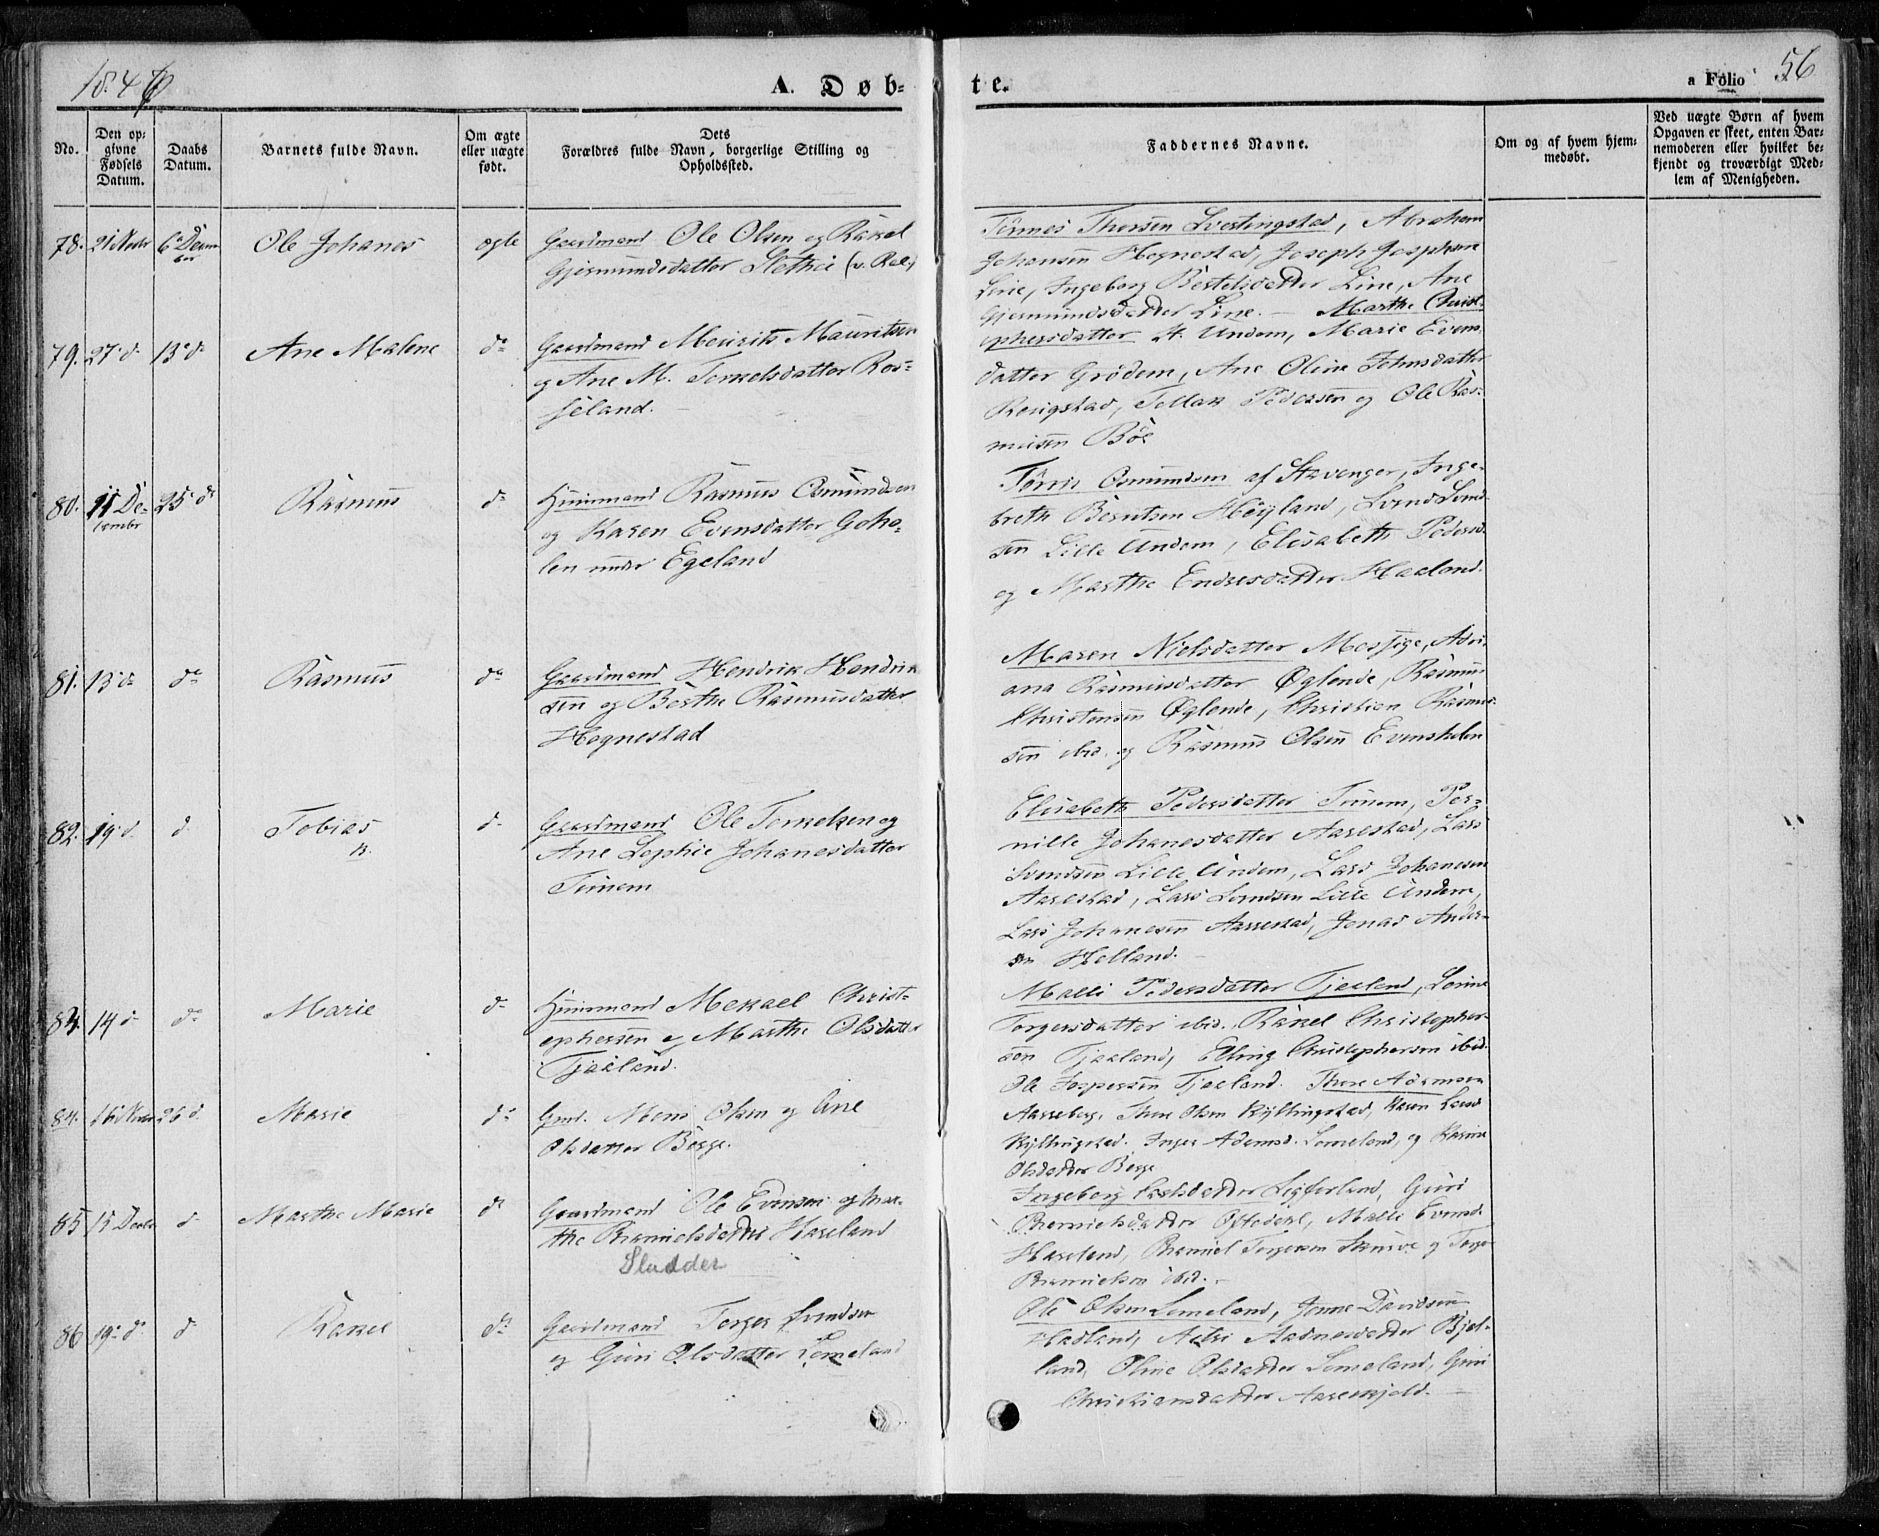 1846
A. Døb-
te.
a Folio 56
No.
Den op-
givne
Fødsels
Datum.
Daabs
Datum.
Barnets fulde Navn.
Om ægte
eller uægte
født.
Dets
Forældres fulde Navn, borgerlige Stilling og
Opholdssted.
Faddernes Navne.
Om og af hvem hjem-
medøbt.
Ved uægte Børn af hvem
Opgaven er skeet, enten Bar-
nemoderen eller hvilket be-
kjendt og troværdigt Med-
lem af Menigheden.
78. 21 Novbr 6 Decem
ber
Ole Johanes
ægte
Gaardmand Ole Olsen og Rakel
Gjermundsdatter
Tönnes Thorsen Svestingstad, Abraham
Johansen Hognestad, Joseph Josephsen
Line, Ingeborg Bertelsdatter Line, Ane
Gjermundsdatter Line. — Marthe Christ-
79. 27 d 13 d
Ane Malene
do
Gaardmand Mauritz Mauritsen
og Ane M. Torkelsdatter Ros-
seland.
ophersdatter St. Undem, Marie Evens
datter Grödem, Ane Oline Johnsdatter
Ronigstad, Tollak Pedersen og Ole Ras-
musen Böe
80. 11 De-
cembr 25 do
Rasmus
do
Huusmand Rasmus Osmundsen
og Karen Evensdatter Goho-
len under Egeland
Törris Osmundsen af Stavanger, Inge-
breth Berntsen Höyland, Svend Svend
sen Lille Undem, Elisabeth Pedersd.
og Marthe Endresdatter Haaland.
81. 13 do do
Rasmus
do
Gaardmand Hendrik Hendrik
sen og Berthe Rasmusdatter
Hognestad
Maren Nielsdatter Mossige, Adri
ana Rasmusdatter Øglende, Rasmus
Christensen Øglende, Christian Rasmus-
sen ibid. og Rasmus Olsen
82. 19 d. d.
Tobias
do
Gaardmand Ole Torkelsen og
Ane Sophie Johanesdatter
Timem
Elisabeth Pedersdatter Timem, Per-
nille Johanesdatter Aarestad, Lars
Svendsen Lille Undem, Lars Johanesen
Aarestad, Lars Svendsen Lille Undem,
Lars Johanesen Aarrestad, Jonas Anders-
sn Helland.
83. 14 d do
Marie
do
Huusmand Mekael Christ-
ophersen og Marthe Olsdatter
Tjaaland.
Malli Pedersdatter Tjaaland,
Torgersdatter ibid. Rakel Christopher-
sen Tjaaland, Elling Christophersen ibid.
Ole Jespersen Tjaaland. Thore Adamsen
84. 16 Novbr 26 d.
Marie
do
Gmd. Mons Olsen og Ane
Olsdatter Börge.
Aarreberg, Thore Olsen Kyllingstad, Karen Larsd
Kyllingstad. Inger Adamsd. Lomeland, og Karine
Olsdatter Borge
85 15 Decbr d.
Marthe Marie
do
Gaardmand Ole Evensen og Mar-
the datter Haaland
Sladder
Ingeborg Larsdatter Sigferland, Guri
datter Oftedal, Malli Evensd.
Haaland, Torgersen
ibid.
86 19 do d.
Rakel
do
Gaardmand Torger Svendsen
og Guri Olsdatter Lomeland
Ole Olsen Lomeland, Jonne Davidsen
Hadland, Aadnesdatter Bjel-
land, Oline Olsdatter Lomeland, Guri
Christiansdatter